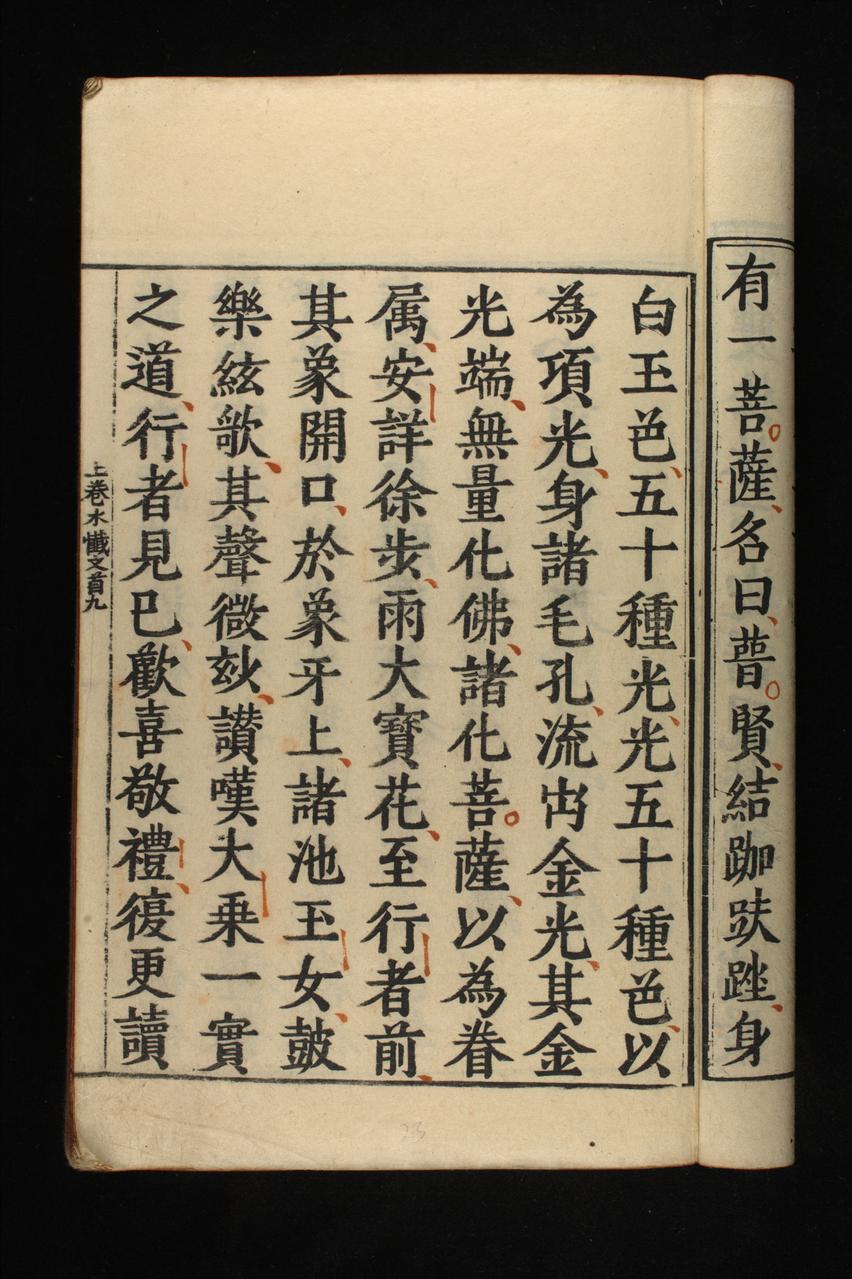 有一菩薩名曰普賢結跏趺䠶身
白玉色五十種光光五十種色以
為項光身諸毛孔流出金光其金
光端無量化佛諸化菩薩以為眷
属安詳徐步雨大寳花至行者前
其象開口於象牙上諸池玉女皷
樂絃歌其聲微玅讃嘆大乗一實
之道行者見已歡喜敬禮復更讀
上卷水懺文首九
23